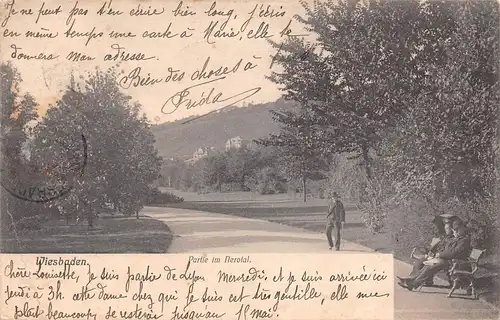 Je ne peut pas t'en écrire bien long, j'écris
en même temps une carte à Marie, elle te
donnera mon adresse.
Bien des choses à
Frida
Wiesbaden.
Partie im Nerotal.
Chère Louisette, je suis partie de Lyon Mercredi. et je suis arrivée ici
jeudi à 3h. cette dame chez qui je suis est très gentille, elle me
plait beaucoup, je resterai jusqu'au 15 mai.